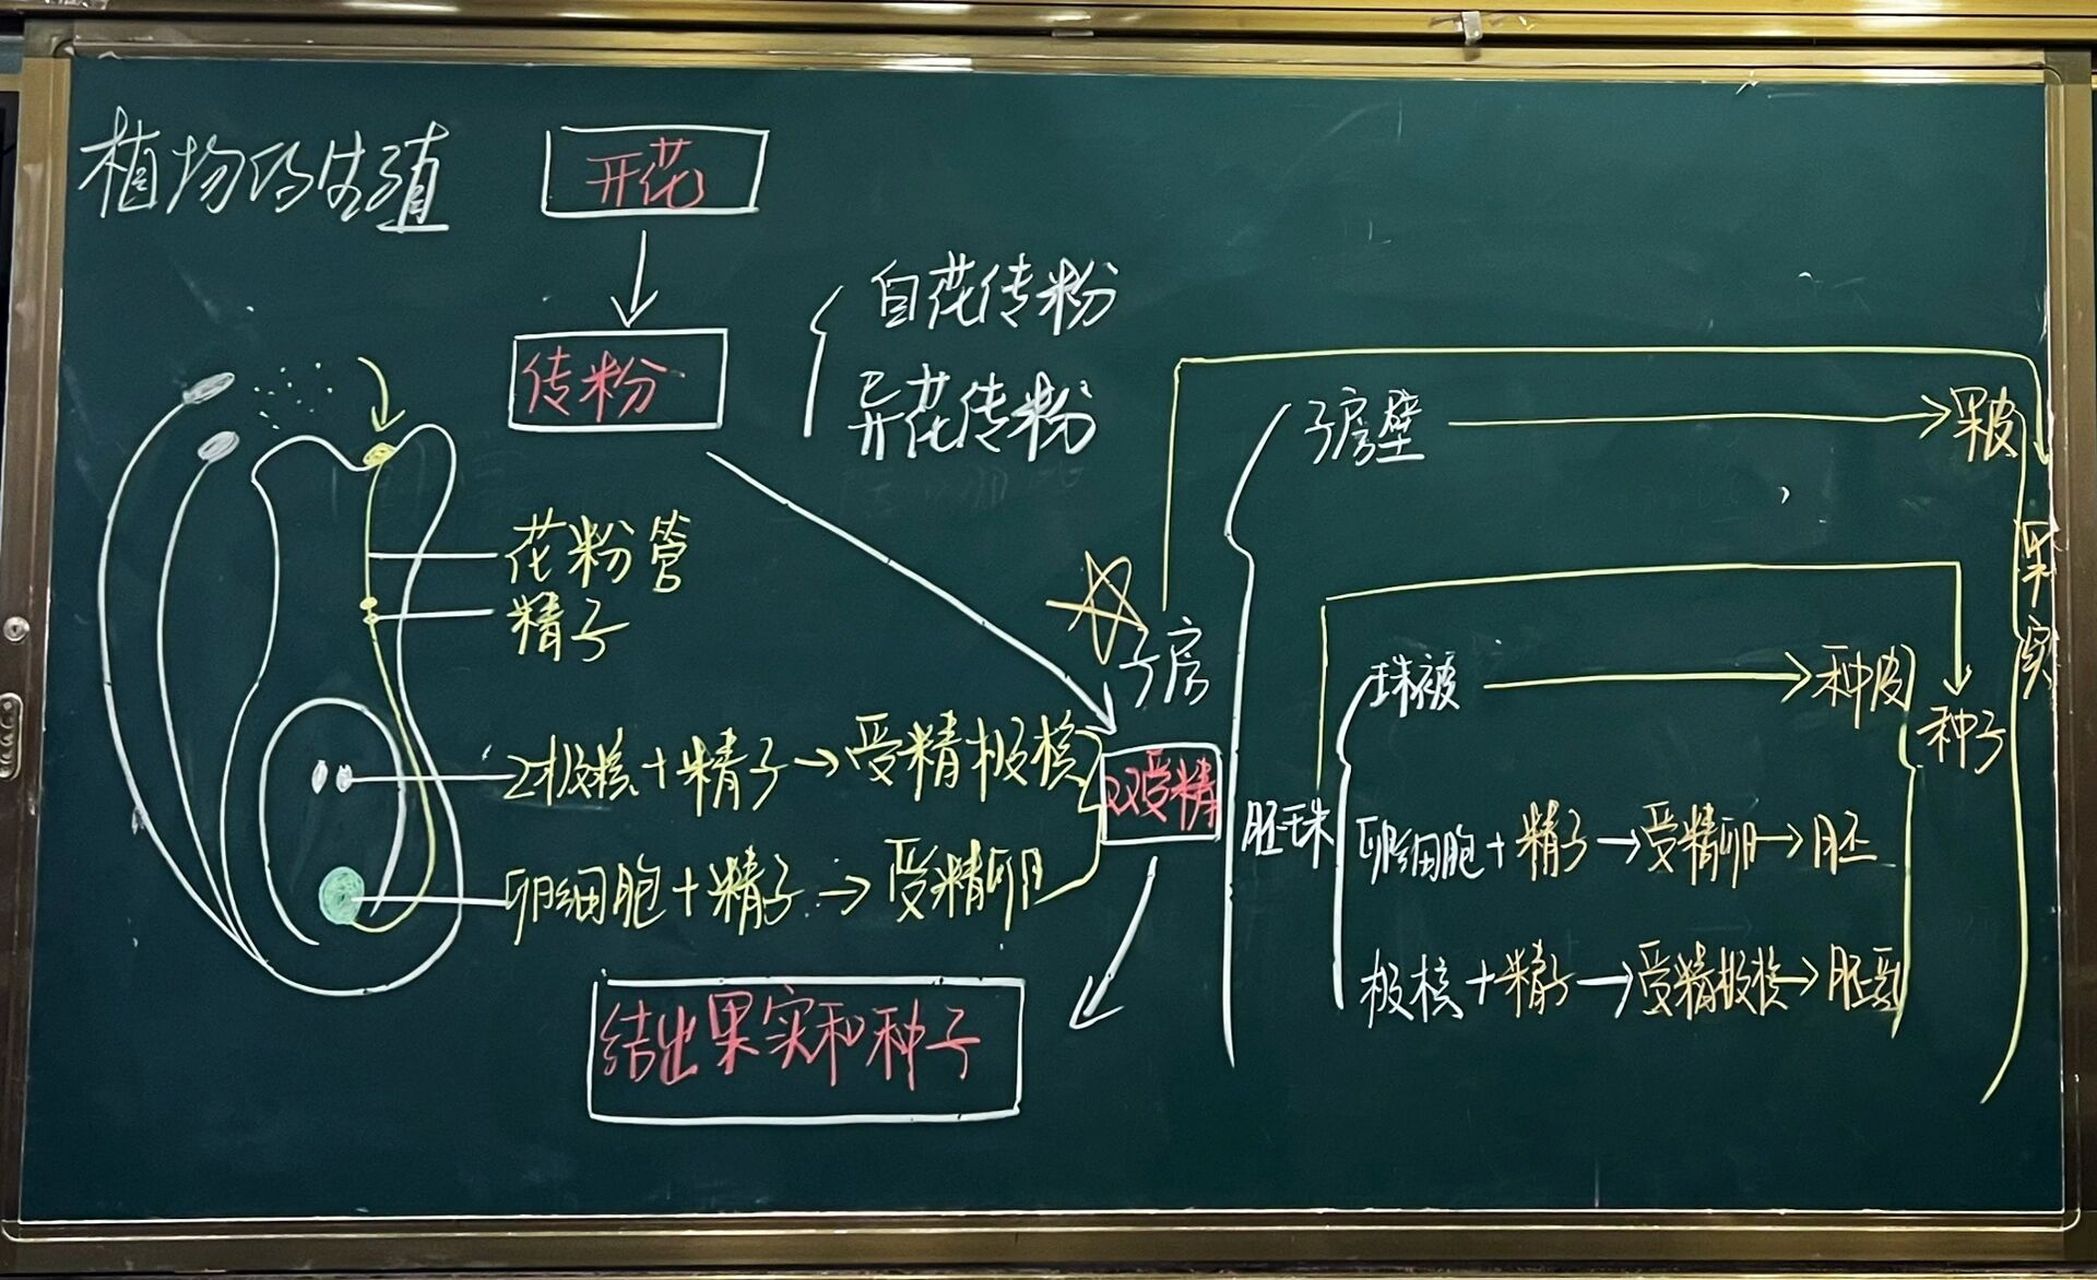 植物的生殖
开花
传粉
自花传粉
异花传粉
花粉管
精子
2极核+精子→受精极核
卵细胞+精子→受精卵
双受精
结出果实和种子
子房
子房壁→果皮
胚珠
珠被→种皮
卵细胞+精子→受精卵→胚
极核+精子→受精极核→胚乳
种子
果实